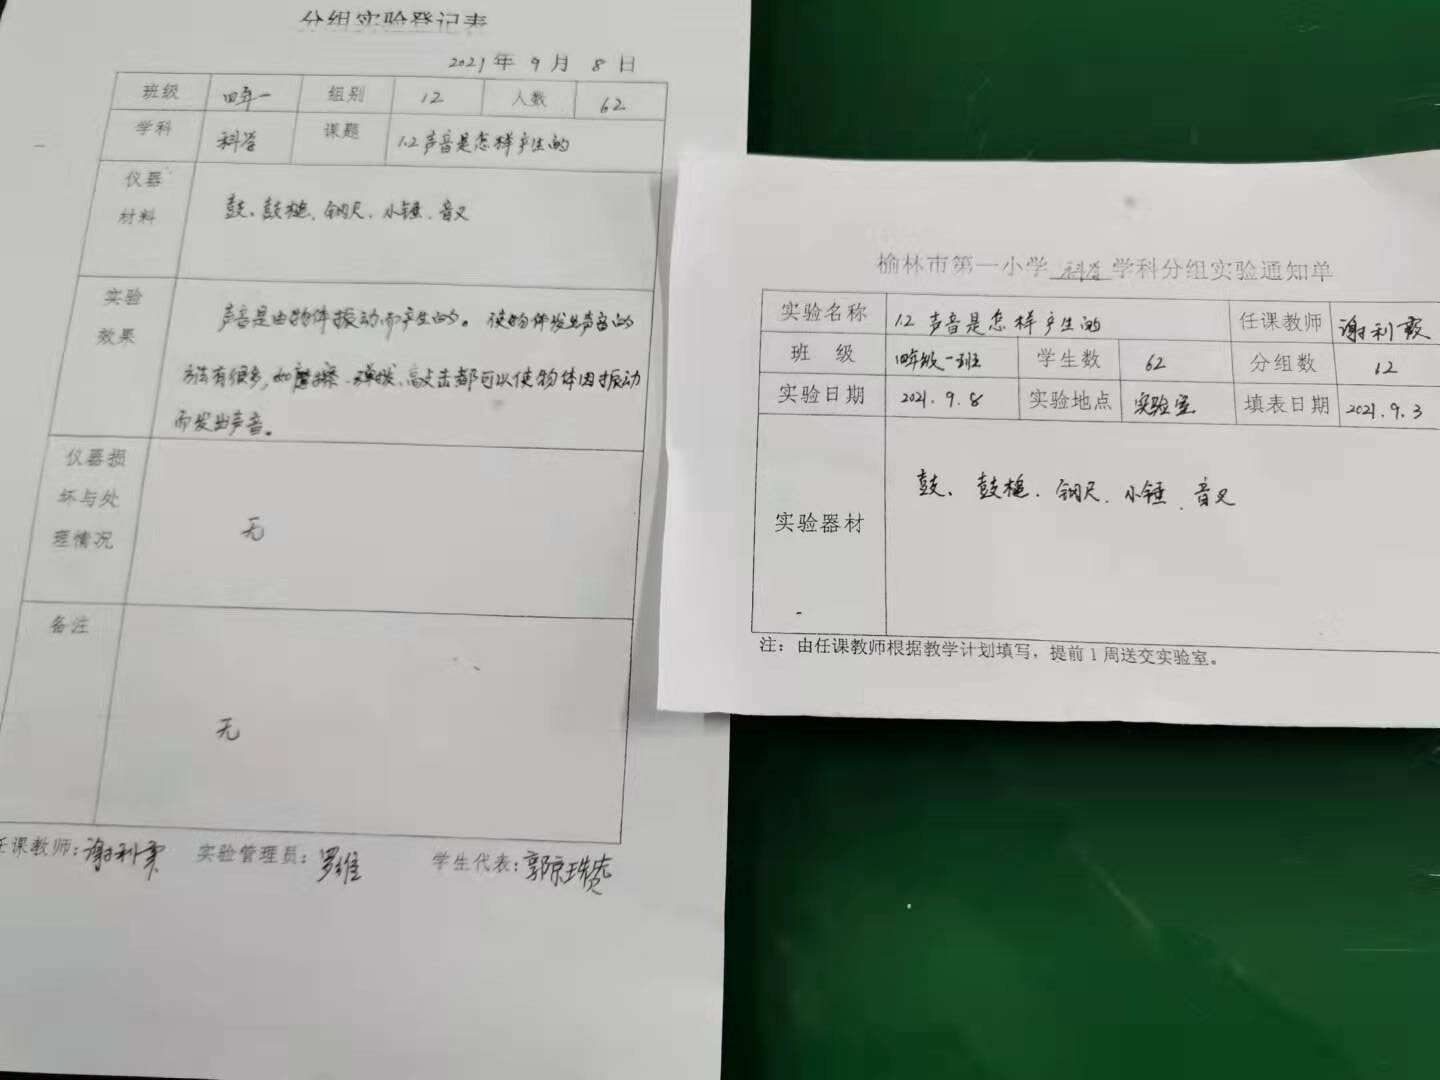 分组实验登记表
2021年 9月 8日
班级 四年一 组别 12 人数 62
学科 科学 课题 1.2声音是怎样产生的
仪器
材料
鼓、鼓槌、钢尺、小锤、音叉
实验
效果
声音是由物体振动而产生的。使物体发出声音的
方法有很多,如摩擦、弹拨、敲击都可以使物体因振动
而发出声音。
仪器损
坏与处
理情况
无
备注
无
任课教师:谢利霞 实验管理员:罗维 学生代表:郭
榆林市第一小学 科学 学科分组实验通知单
实验名称 1.2 声音是怎样产生的 任课教师 谢利霞
班 级 四年级一班 学生数 62 分组数 12
实验日期 2021.9.8 实验地点 实验室 填表日期 2021.9.3
实验器材 鼓、鼓槌、钢尺、小锤、音叉
注:由任课教师根据教学计划填写,提前1周送交实验室。